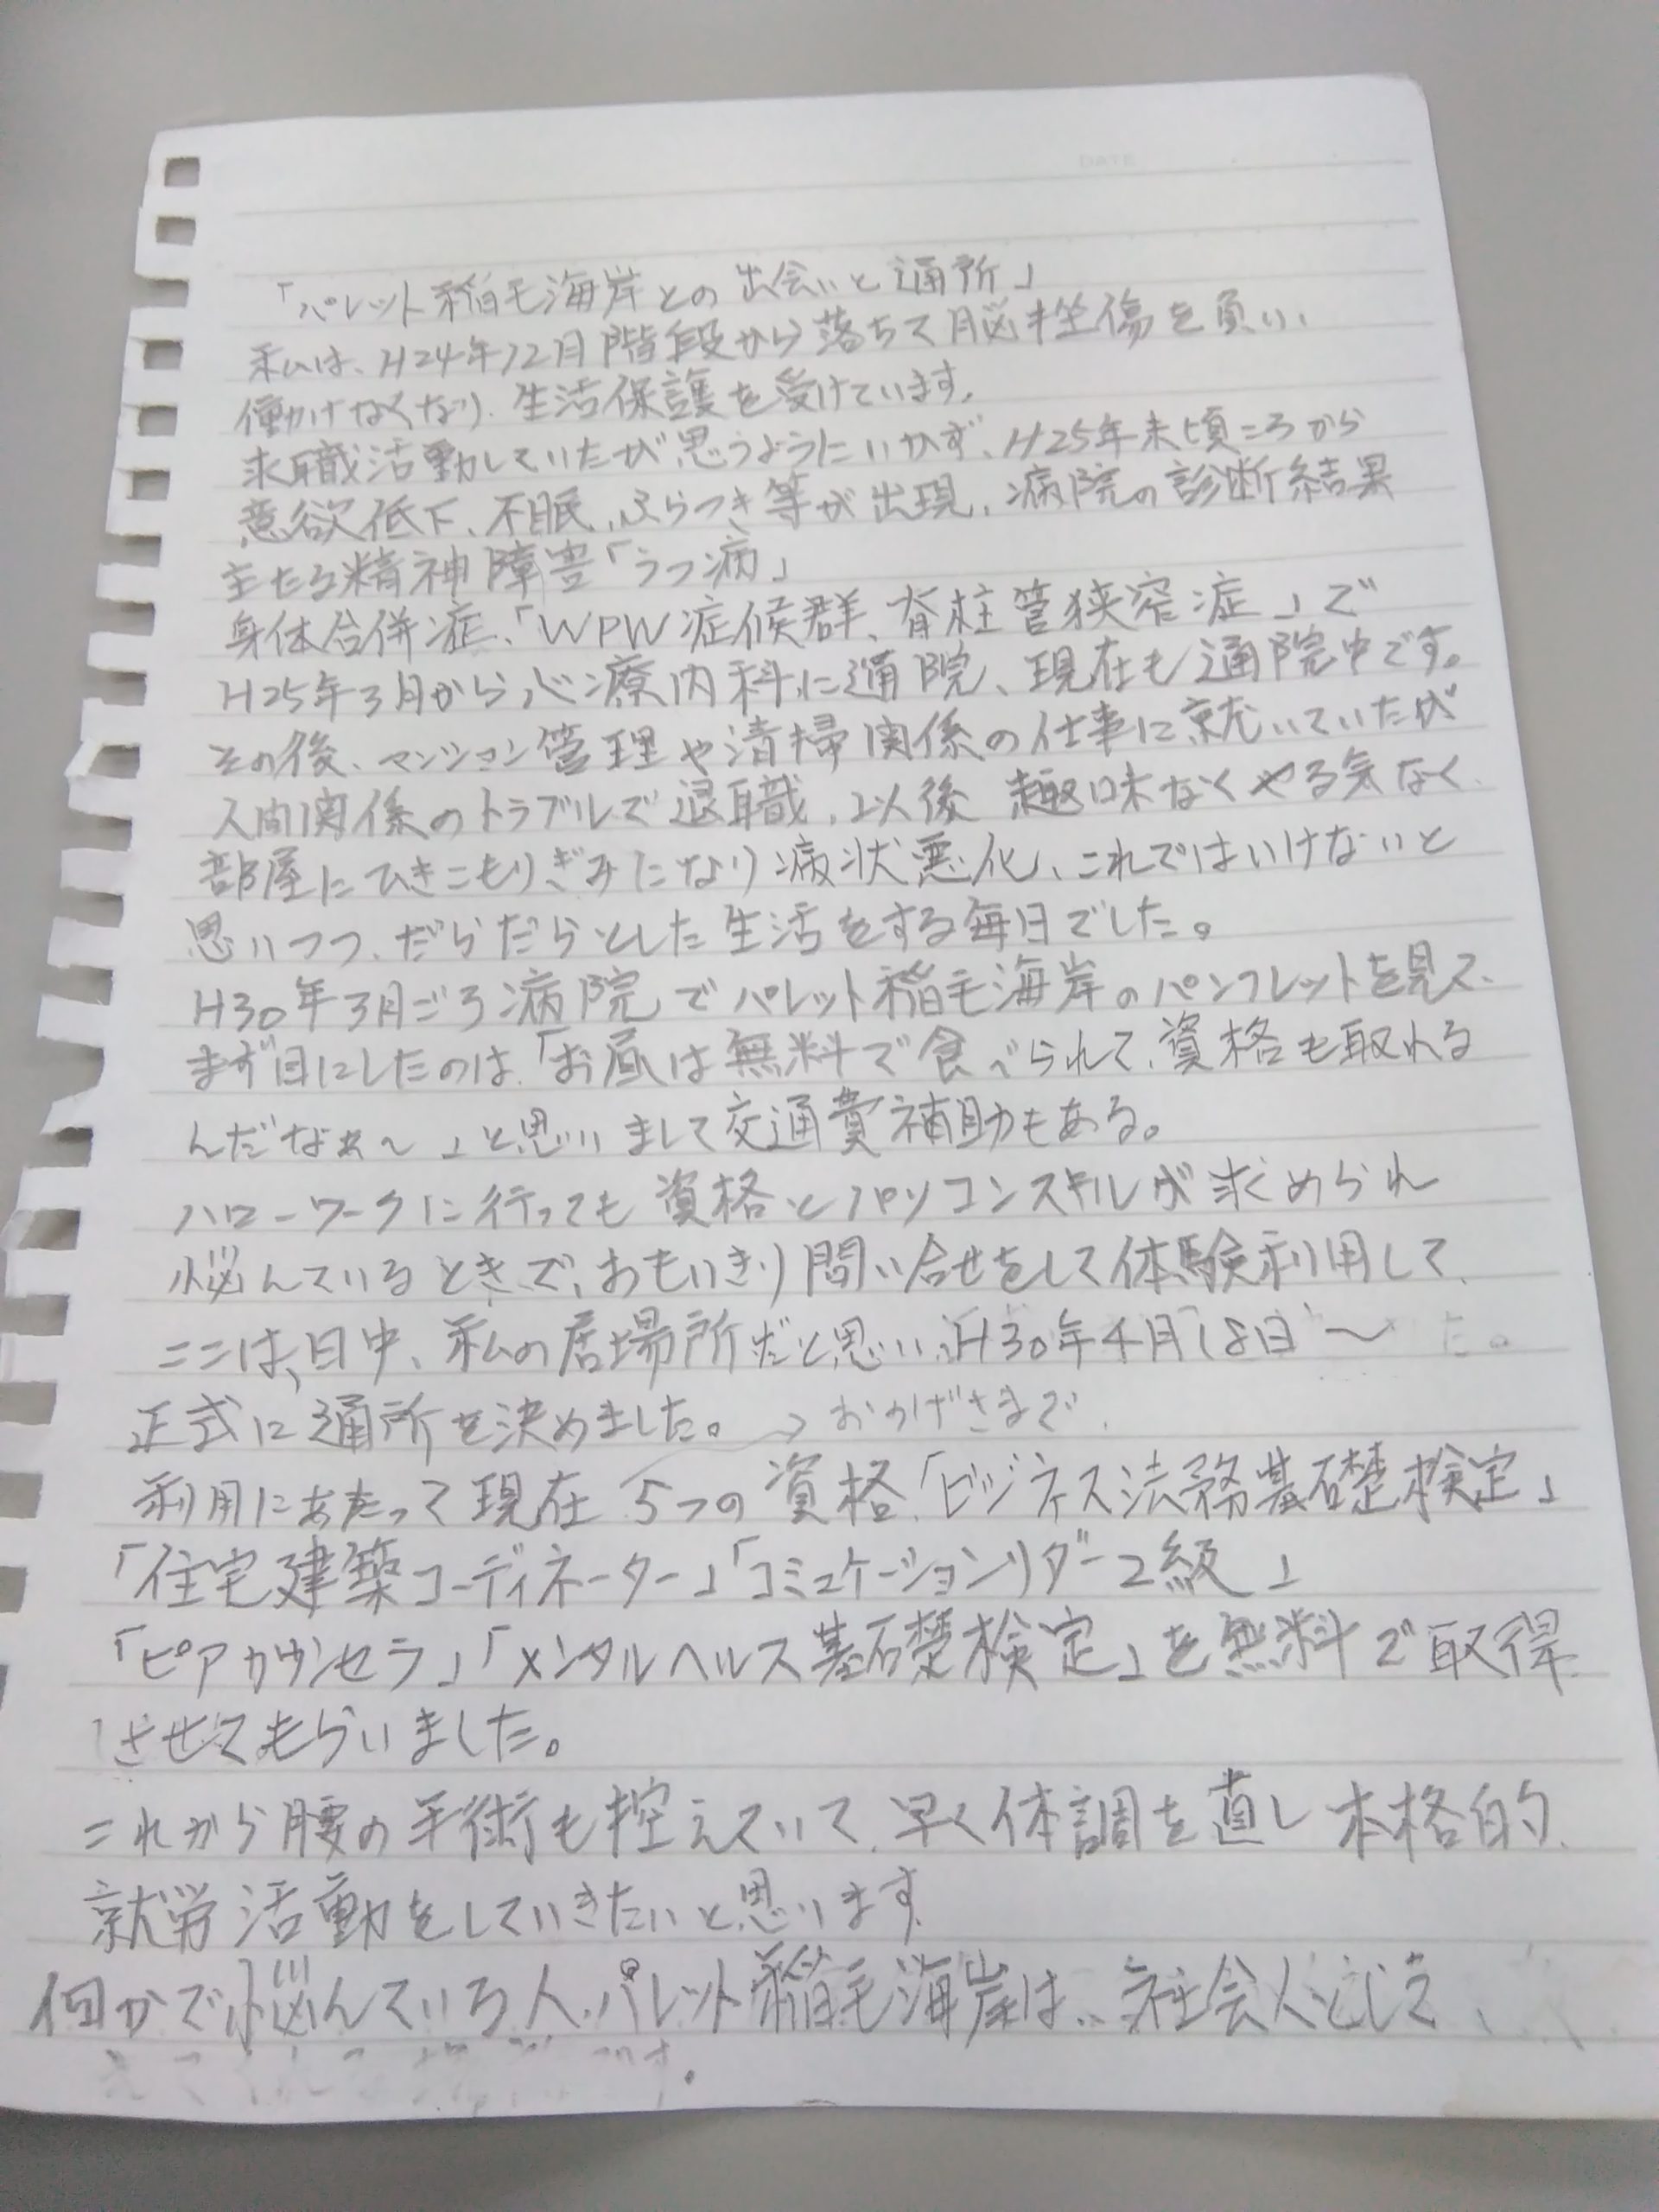 「パレット稲毛海岸との出会いと通所」
私は、H24年12月階段から落ちて脳挫傷を負い、
働けなくなり、生活保護を受けています。
求職活動していたが思うようにいかず、H25年末頃ころから
意欲低下、不眠、ふらつき等が出現、病院の診断結果
主たる精神障害「うつ病」
身体合併症、「WPW症候群、脊柱管狭窄症」で
H25年3月から心療内科に通院、現在も通院中です。
その後、マンション管理や清掃関係の仕事に就いていたが
人間関係のトラブルで退職、以後 趣味なくやる気なく、
部屋にひきこもりぎみになり病状悪化、これではいけないと
思いつつ、だらだらとした生活をする毎日でした。
H30年3月ごろ病院でパレット稲毛海岸のパンフレットを見て、
まず目にしたのは、「お昼は無料で食べられて、資格も取れる
んだなぁ〜」と思いまして交通費補助もある。
ハローワークに行っても資格とパソコンスキルが求められ
悩んでいるときで、おもいきり問い合せをして体験利用して、
ここは、日中、私の居場所だと思い、H30年4月18日〜 た。
正式に通所を決めました。→おかげさまで、
利用にあたって現在 5つの資格、「ビジネス法務基礎検定」
「住宅建築コーディネーター」「コミュケーションリダー2級」
「ピアカウンセラ」「メンタルヘルス基礎検定」を無料で取得
させてもらいました。
これから腰の手術も控えていて、早く体調を直し本格的、
就労活動をしていきたいと思います。
何かで悩んでいる人、パレット稲毛海岸は、社会人として、